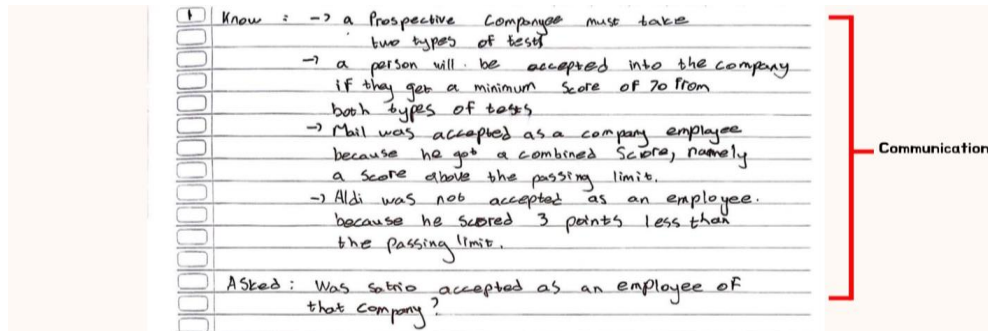 1 Know : -> a Prospective Companyee must take
two types of tests
-> a person will be accepted into the company
if they get a minimum score of 70 from
both types of tests
-> Mail was accepted as a company employee
because he got a combined Score, namely
a Score above the passing limit.
-> Aldi was not accepted as an employee.
because he scored 3 points less than
the passing limit.
Asked : Was satrio accepted as an employee of
that company?
Communication